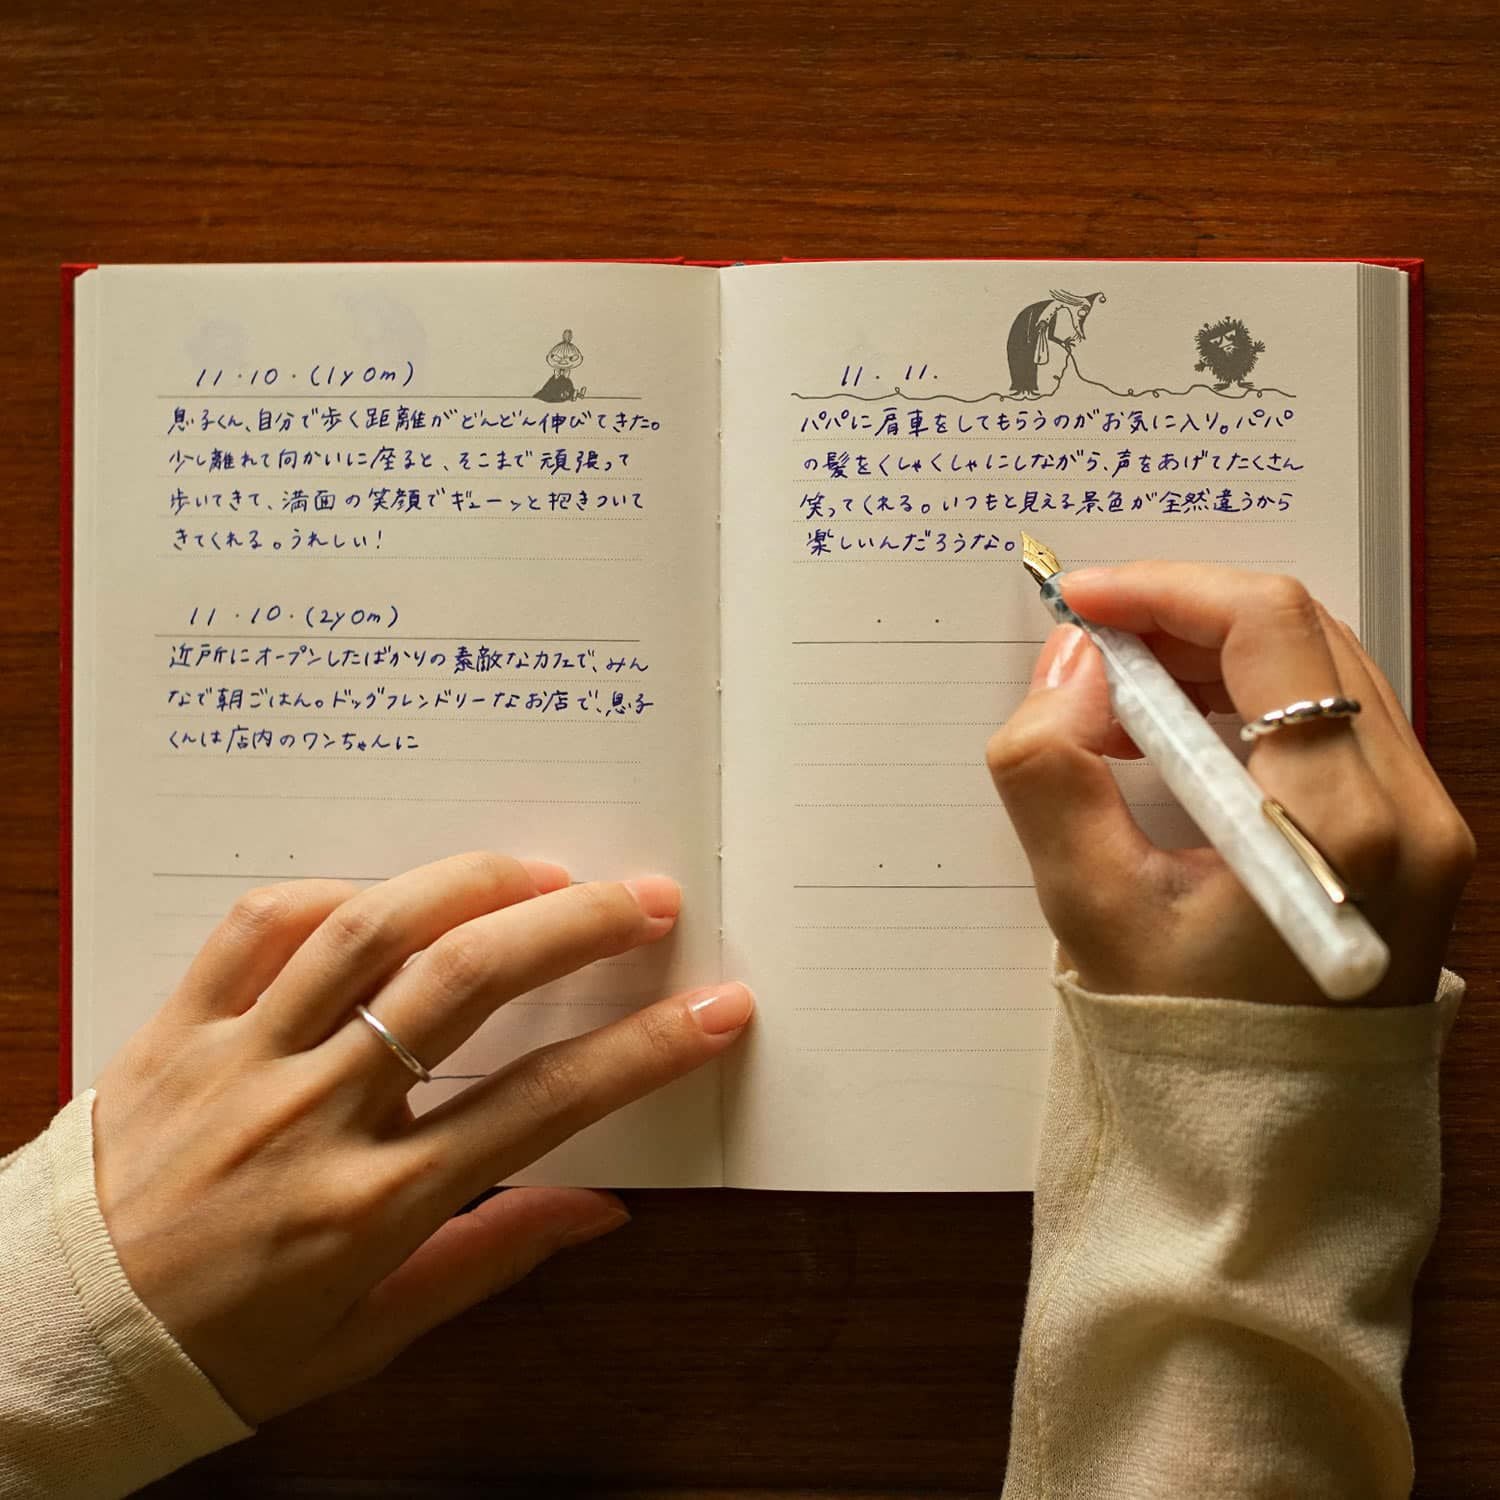 11・10・(1y0m)
息子くん、自分で歩く距離がどんどん伸びてきた。
少し離れて向かいに座ると、そこまで頑張って
歩いてきて、満面の笑顔でギューッと抱きついて
きてくれる。うれしい!
11・10・(2y0m)
近所にオープンしたばかりの素敵なカフェで、みん
なで朝ごはん。ドッグフレンドリーなお店で、息子
くんは店内のワンちゃんに
11. 11.
パパに肩車をしてもらうのがお気に入り。パパ
の髪をくしゃくしゃにしながら、声をあげてたくさん
笑ってくれる。いつもと見える景色が全然違うから
楽しいんだろうな。